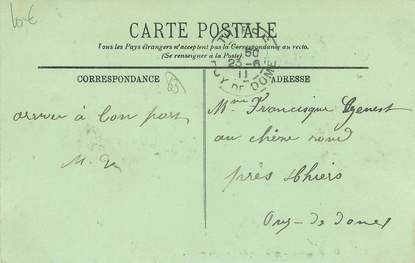 CARTE POSTALE
Tous les Pays étrangers n'acceptent pas la Correspondance au recto.
(Se renseigner à la Poste).
23-6
11
PUY-DE-DOME
CORRESPONDANCE
ADRESSE
arriver à bon port
M.
Mme Francisque Genest
au chêne rond
près Thiers
Puy-de-dome